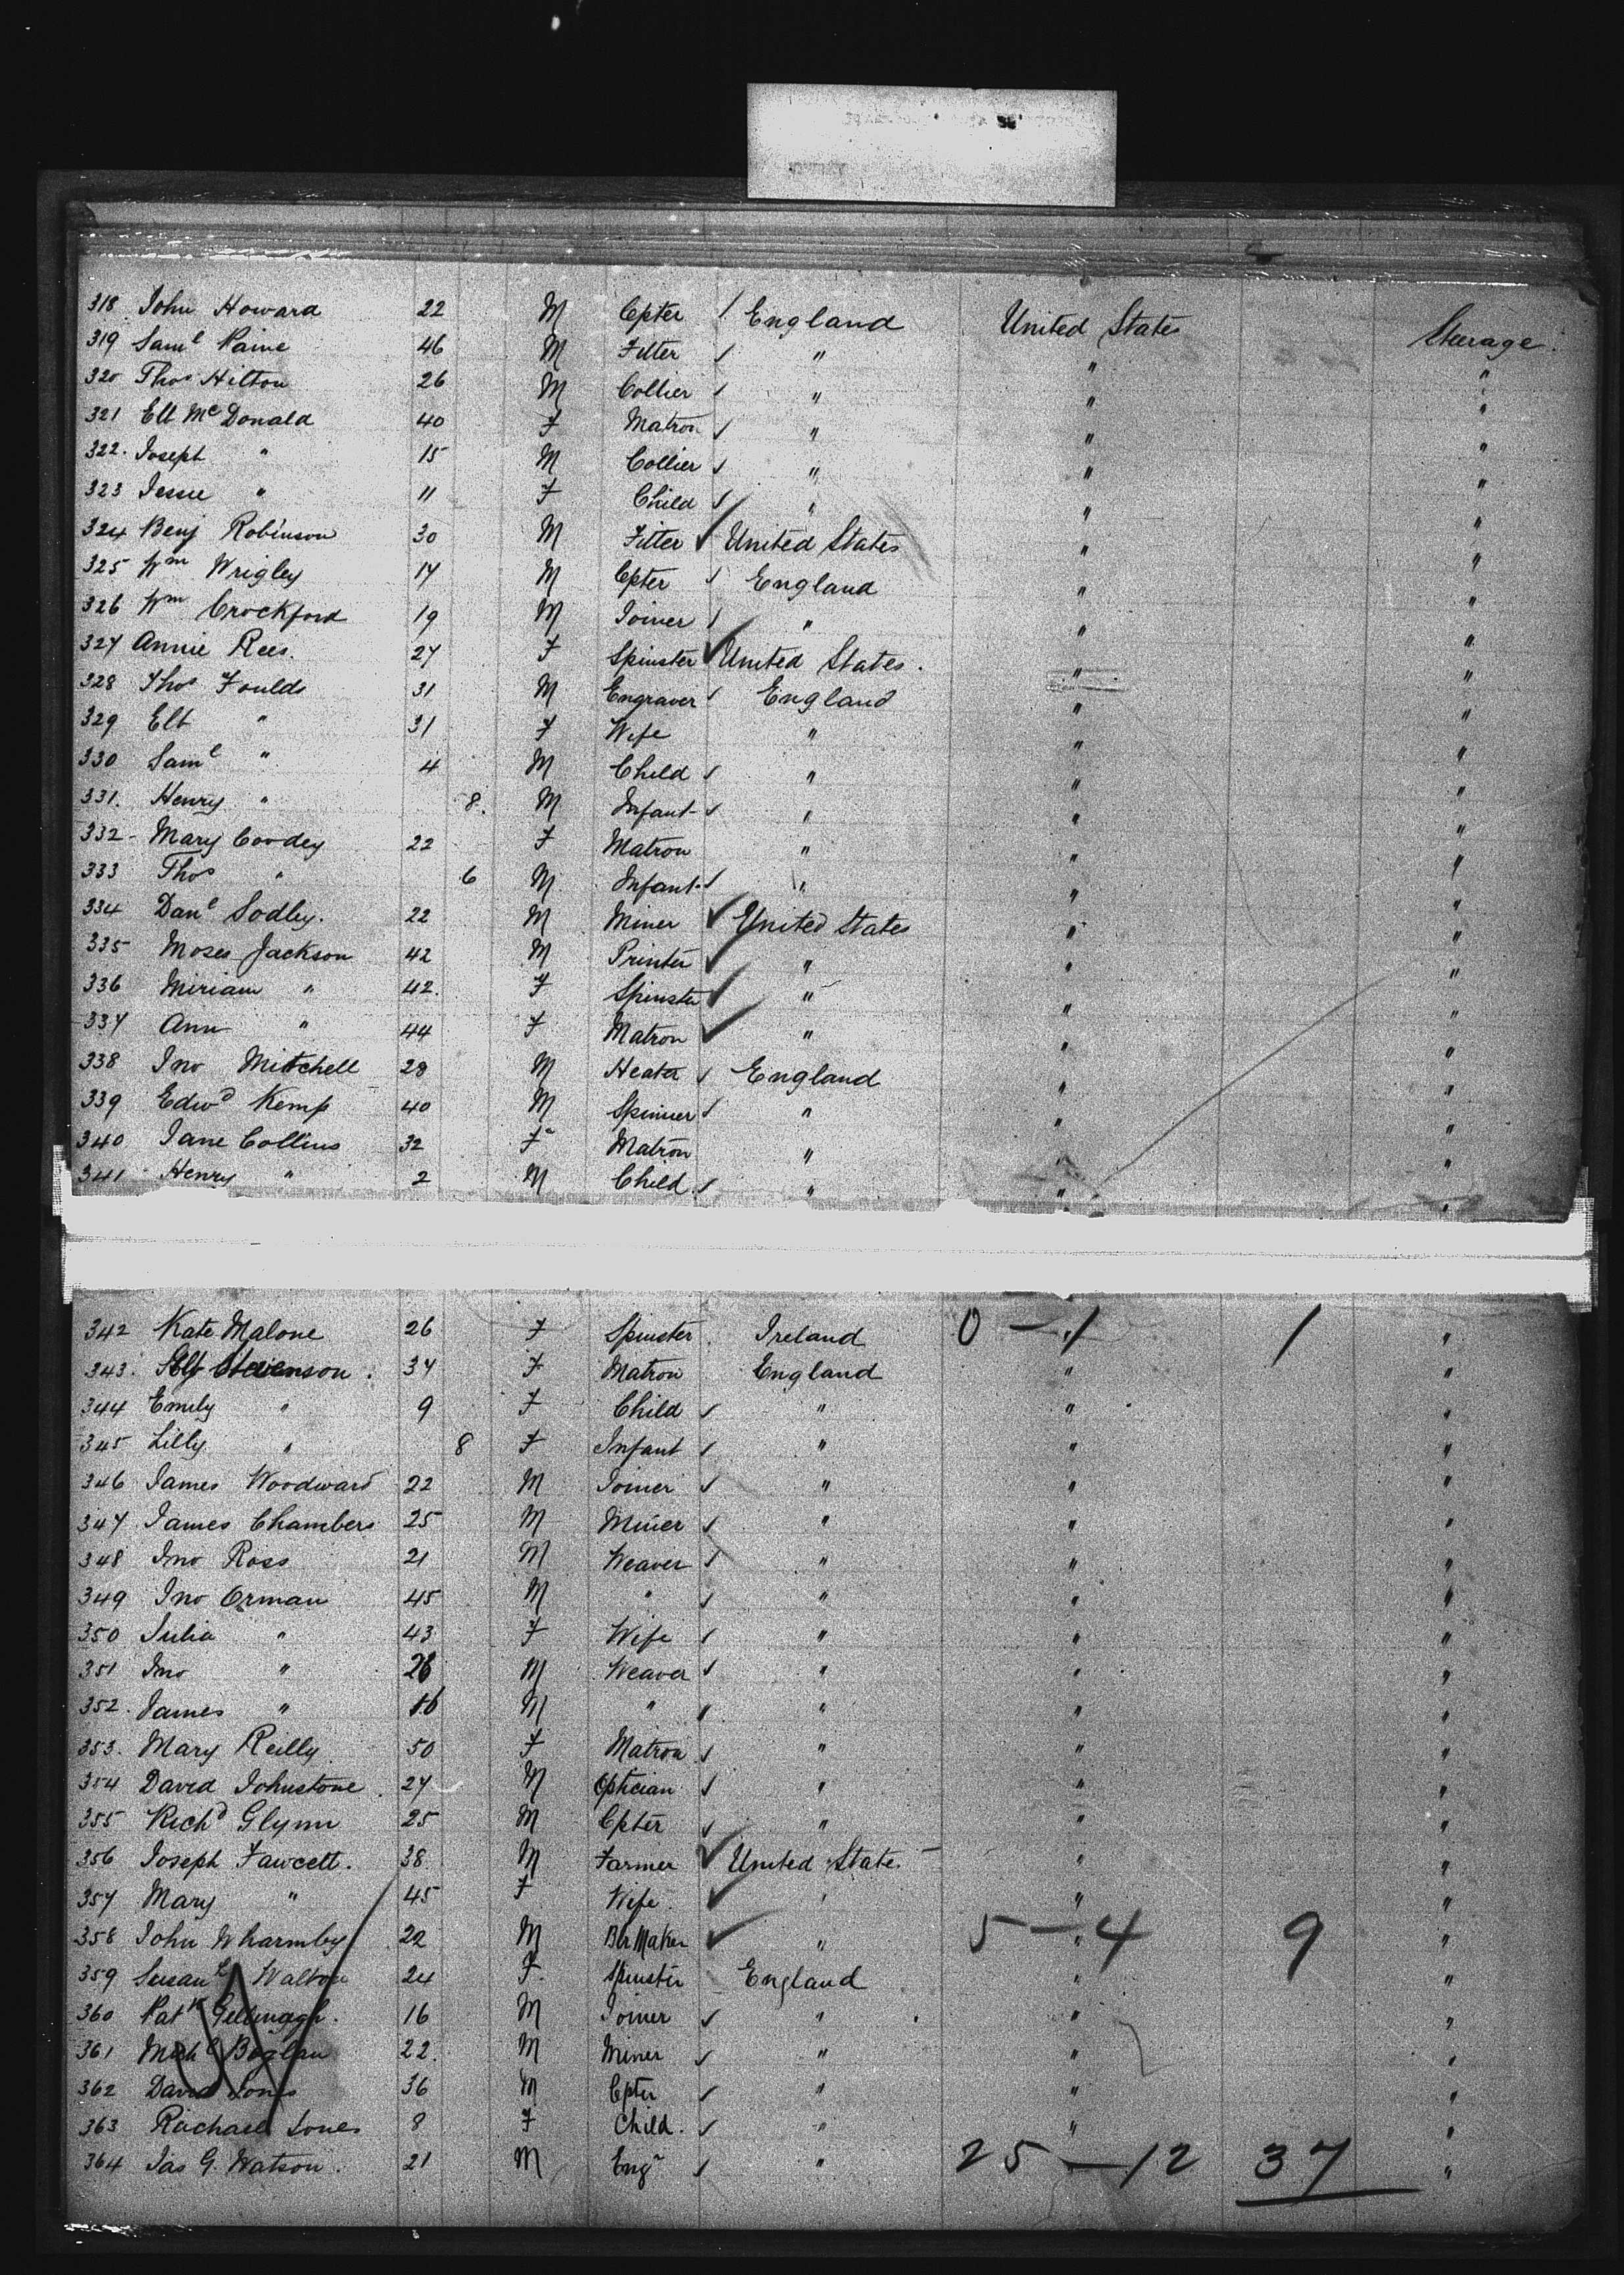 318 John Howard 22 M Cpter England United States Steerage
319 Saml Paine 46 M Fitter " " "
320 Thos Hilton 26 M Collier " " "
321 Elt McDonald 40 F Matron " " "
322. Joseph " 15 M Collier " " "
323 Jessie " 11 F Child " " "
324 Benj Robinson 30 M Fitter United States " "
325 Wm Wrigley 17 M Cpter England " "
326 Wm Crockford 19 M Joiner " " "
327 Annie Rees. 27 F Spinster United States. " "
328 Thos Foulds 31 M Engraver England " "
329 Elt " 31 F Wife " " "
330 Saml " 4 M Child " " "
331. Henry " 8. M Infant " " "
332 - Mary Coodey 22 F Matron " " "
333 Thos " 6 M Infant " " "
334 Danl Sodley. 22 M Miner United States " "
335 Moses Jackson 42 M Printer " " "
336 Miriam " 42. F Spinster " " "
337 Ann " 44 F Matron " " "
338 Jno Mitchell 28 M England " "
339 Edwd Kemp 40 M Spinner " " "
340 Jane Collins 32 F Matron " " "
341 Henry " 2 M Child " " "
342 Kate Malone 26 F Spinster Ireland 0 - 1 1 "
343. Stevenson. 37 F Matron England " "
344 Emily " 9 F Child " " "
345 Lilly " 8 F Infant " " "
346 James Woodward 22 M Joiner " " "
347 James Chambers 25 M Miner " " "
348 Jno Ross 21 M Weaver " " "
349 Jno Orman 45 M " " " "
350 Julia " 43 F Wife " " "
351 Jno " M Weaver " " "
352. James " 16 M " " " "
353. Mary Reilly 50 F Matron " " "
354 David Johnstone. 27 M Optician " " "
355 Richd Glynn 25 M Cpter " " "
356 Joseph Fawcett. 38 M Farmer United State. " "
357 Mary " 45 F Wife. " " "
358 John Wharmby 22 M Maker " " 5 - 4 9 "
359 Susan Walton 24 F. Spinster England " "
360 Patk 16 M Joiner " " "
361 Michl Boylan 22. M Miner " " "
362 David Jones 36 M Cpter " " "
363 Rachael Jones 8 F Child. " " "
364 Jas G. Watson. 21 M Engr " 25 - 12 37 "